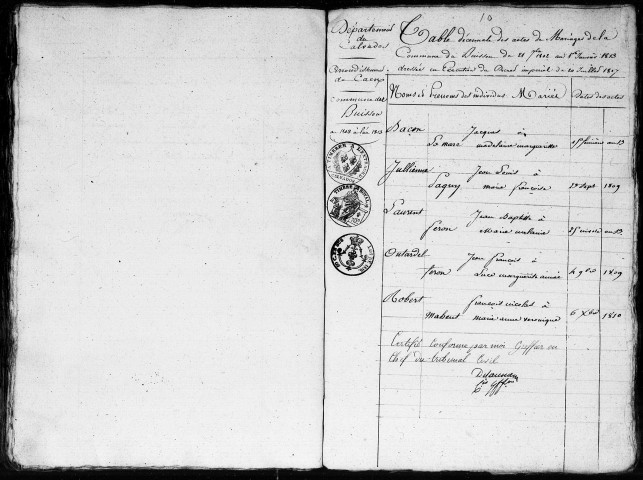 10
Département
du
Calvados
Arrondissement
de Caen
Commune de
Buisson
Table décennale des actes de Mariages de la
Commune du Buisson du 21 7bre 1802 au 1er Janvier 1813
dressée en Exécution du Décret impérial du 20 Juillet 1807
Noms et Prénoms des individus Mariés
Dates des actes
Bacon Jacques à
La mare madelaine margueritte
an 13
Jullienne Jean Louis à
Lagny marie françoise
7bre 1809
Laurent Jean Baptiste à
feron Marie
25 an 12
Outardel Jean François à
feron Luce marguerite aimée
4 9bre 1809
Robert françois nicolas à
Mabeut marie anne véronique
6 Xbre 1810
Certifié Conforme par moi Greffier en
Chef du tribunal Civil
TIMBRE ROYAL